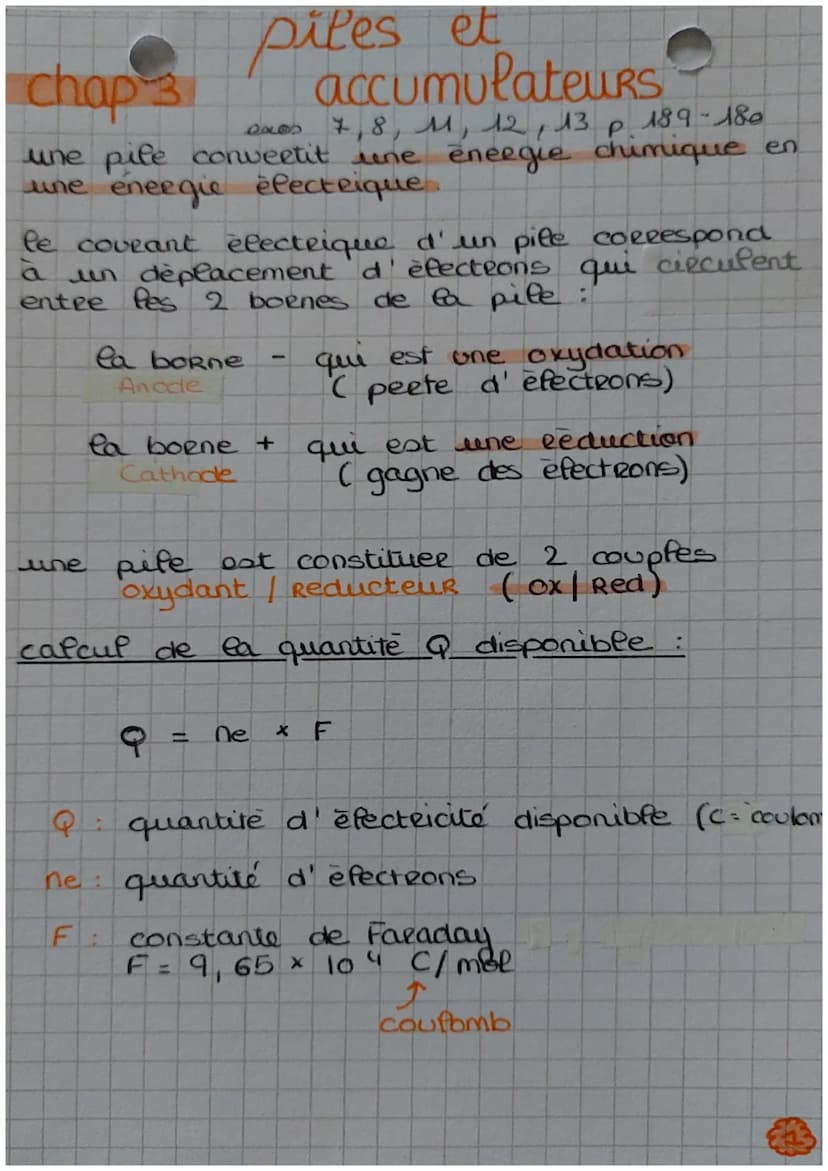 piles et
chap 3 accumulateurs
exos 7, 8, 11, 12, 13 p. 189-180
une pile convertit une énergie chimique en
une énergie électrique
le courant électrique d'un pile correspond
à un déplacement d'électrons qui circulent
entre les 2 bornes de la pile :
la borne - qui est une oxydation
Anode ( perte d'électrons)
la borne + qui est une réduction
Cathode ( gagne des électrons)
une pile est constituée de 2 couples
oxydant / Réducteur ( ox / Red)
calcul de la quantité Q disponible :
Q = ne × F
Q : quantité d'électricité disponible (C = coulom
ne : quantité d'électrons
F : constante de Faraday
F = 9,65 × 10 4 C / mol
↑
coulomb